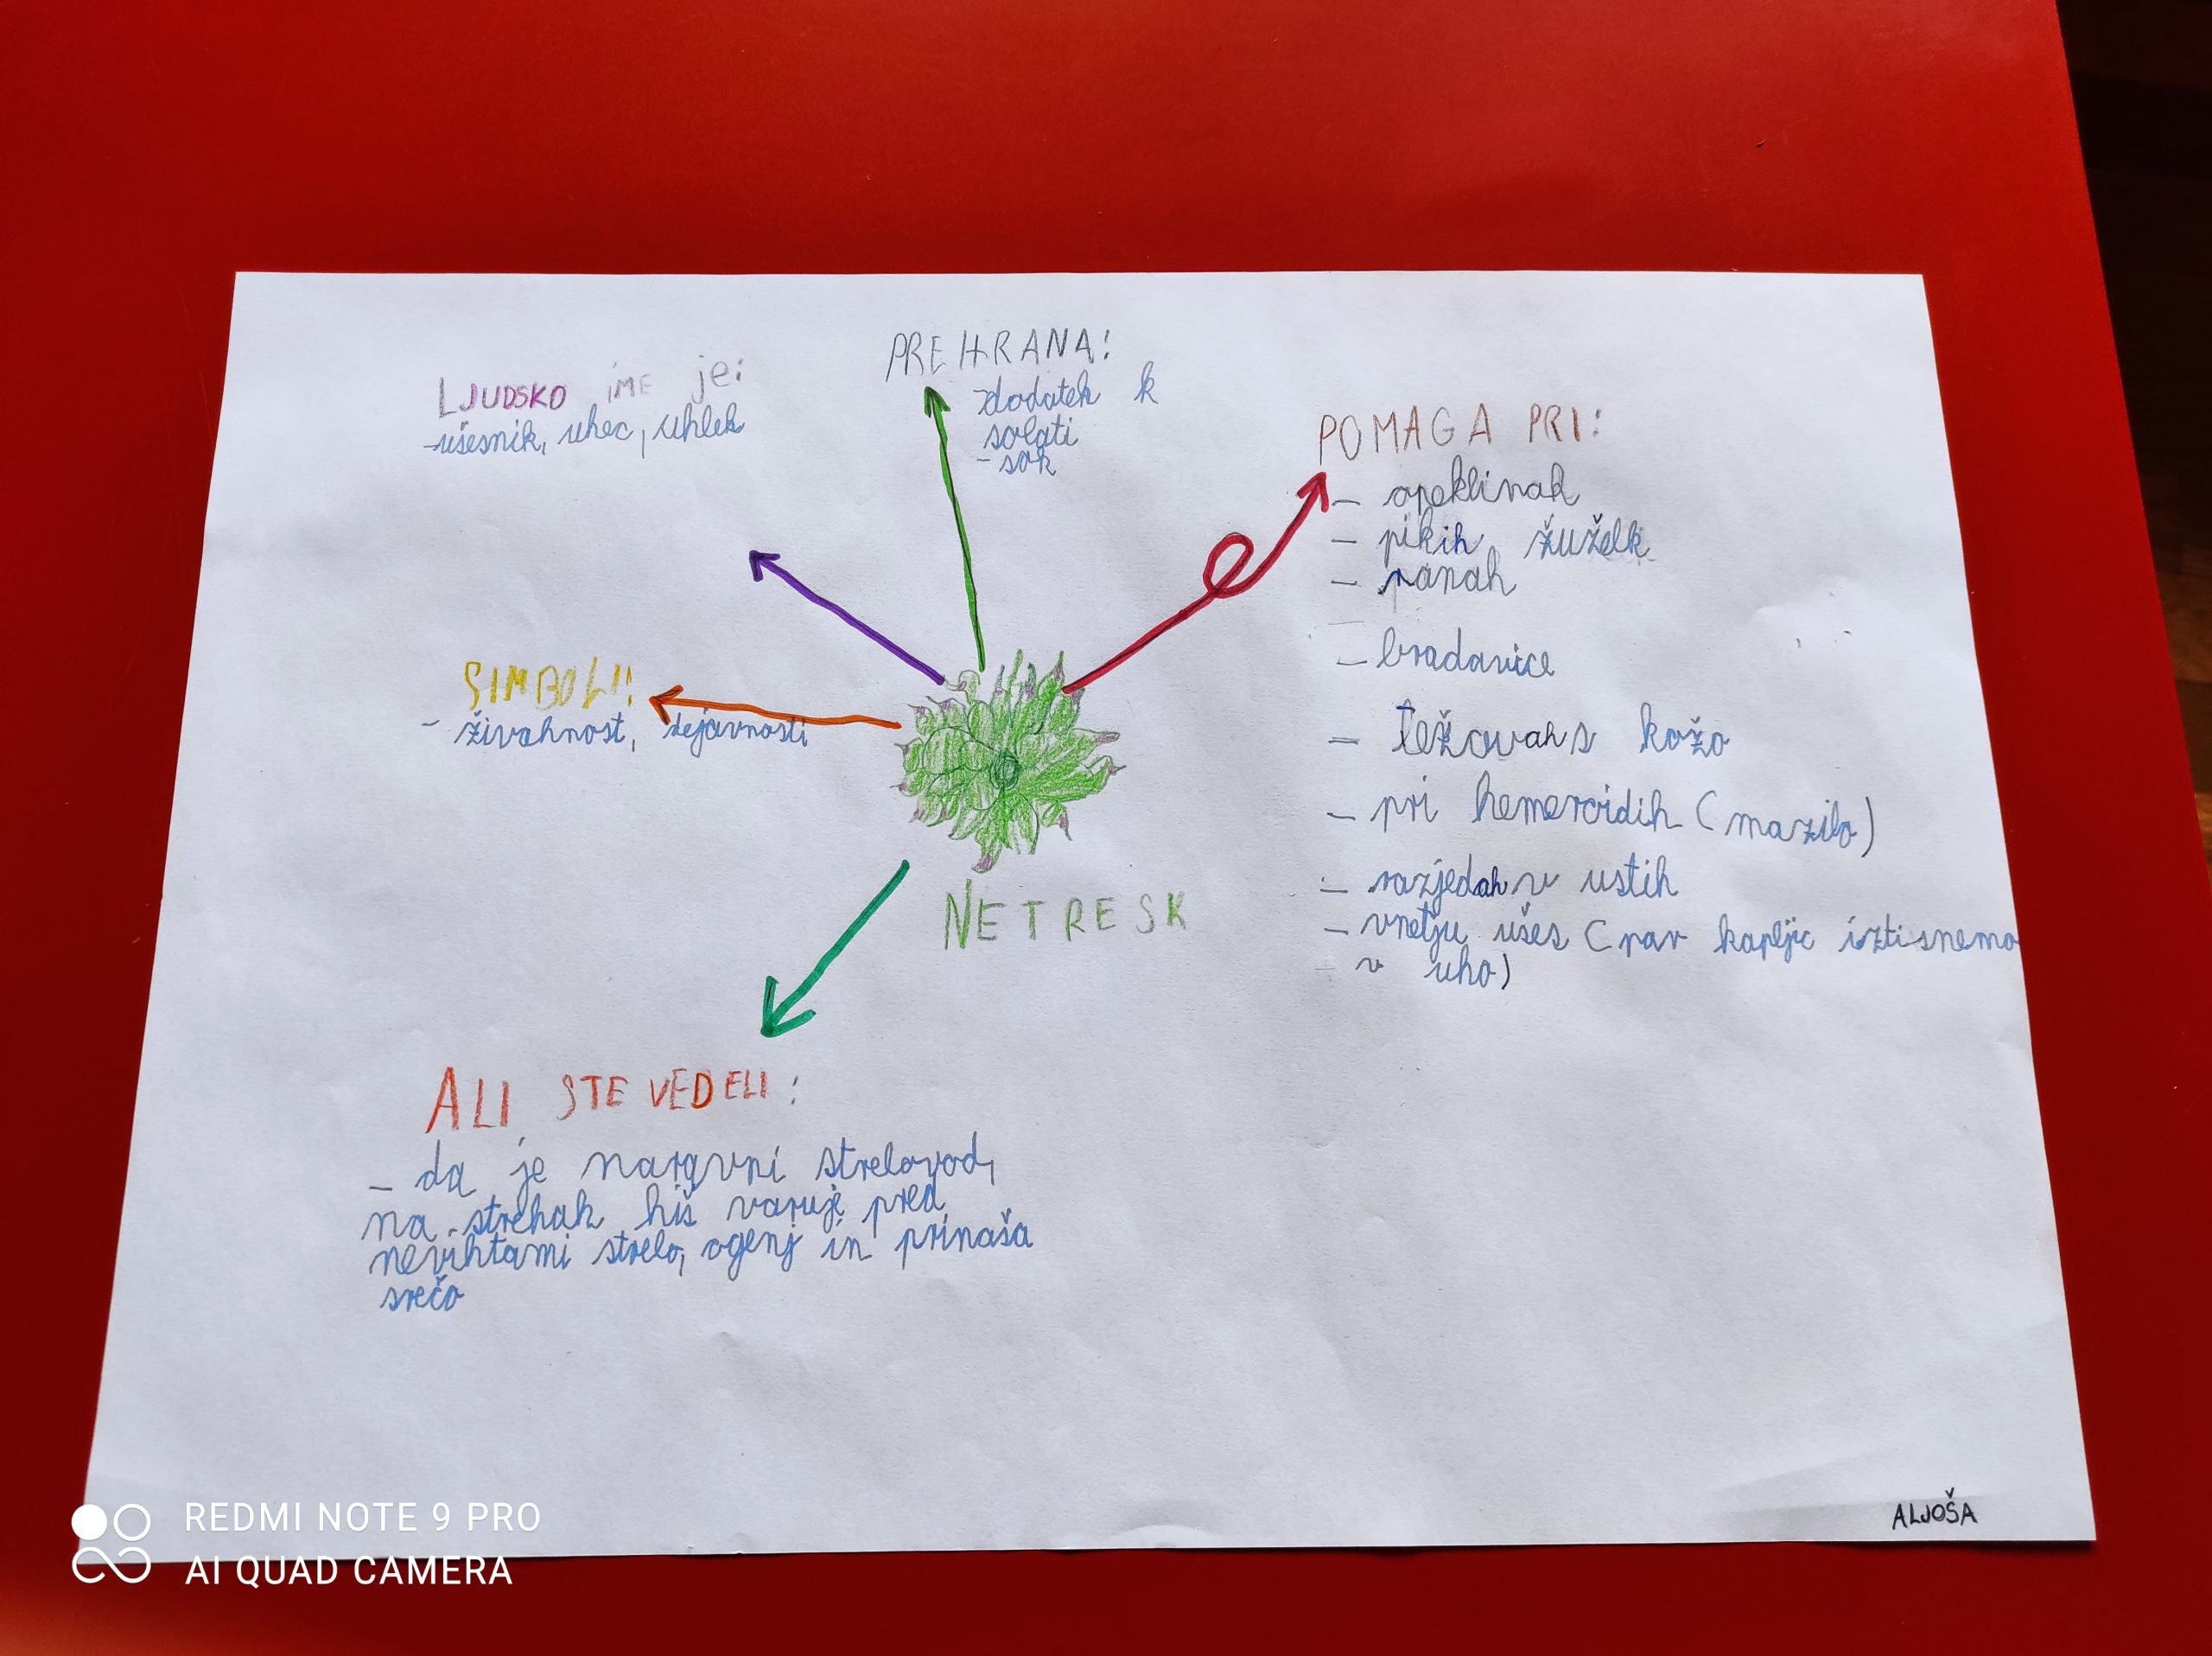 LJUDSKO iME je:
-ušesnik, uhec, uhlek
PREHRANA:
-dodatek k
solati
- sok
POMAGA PRI:
- opeklinah
- pikih žuželk
- ranah
- bradavice
- težovah s kožo
- pri hemeroidih (mazilo)
- razjedah v ustih
- vnetju ušes ( par kapljic iztisnemo
v uho)
SIMBOLI:
- živahnost, dejavnosti
NETRESK
ALI STE VEDELI:
- da je naravni strelovod,
na strehah hiš varuje pred
nevihtami strelo, ogenj in prinaša
srečo
ALJOŠA
REDMI NOTE 9 PRO
AI QUAD CAMERA